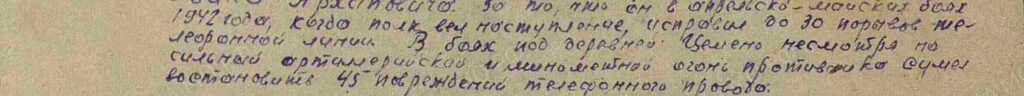 Архиповича. За то, что он в апрельско-майских боях
1942 года, когда полк вел наступление, исправил до 30 порывов те-
лефонной линии. В боях под деревней Цемено несмотря на
сильный артиллерийский и минометной огонь противника сумел
востоновить 45 повреждений телефонного провода.